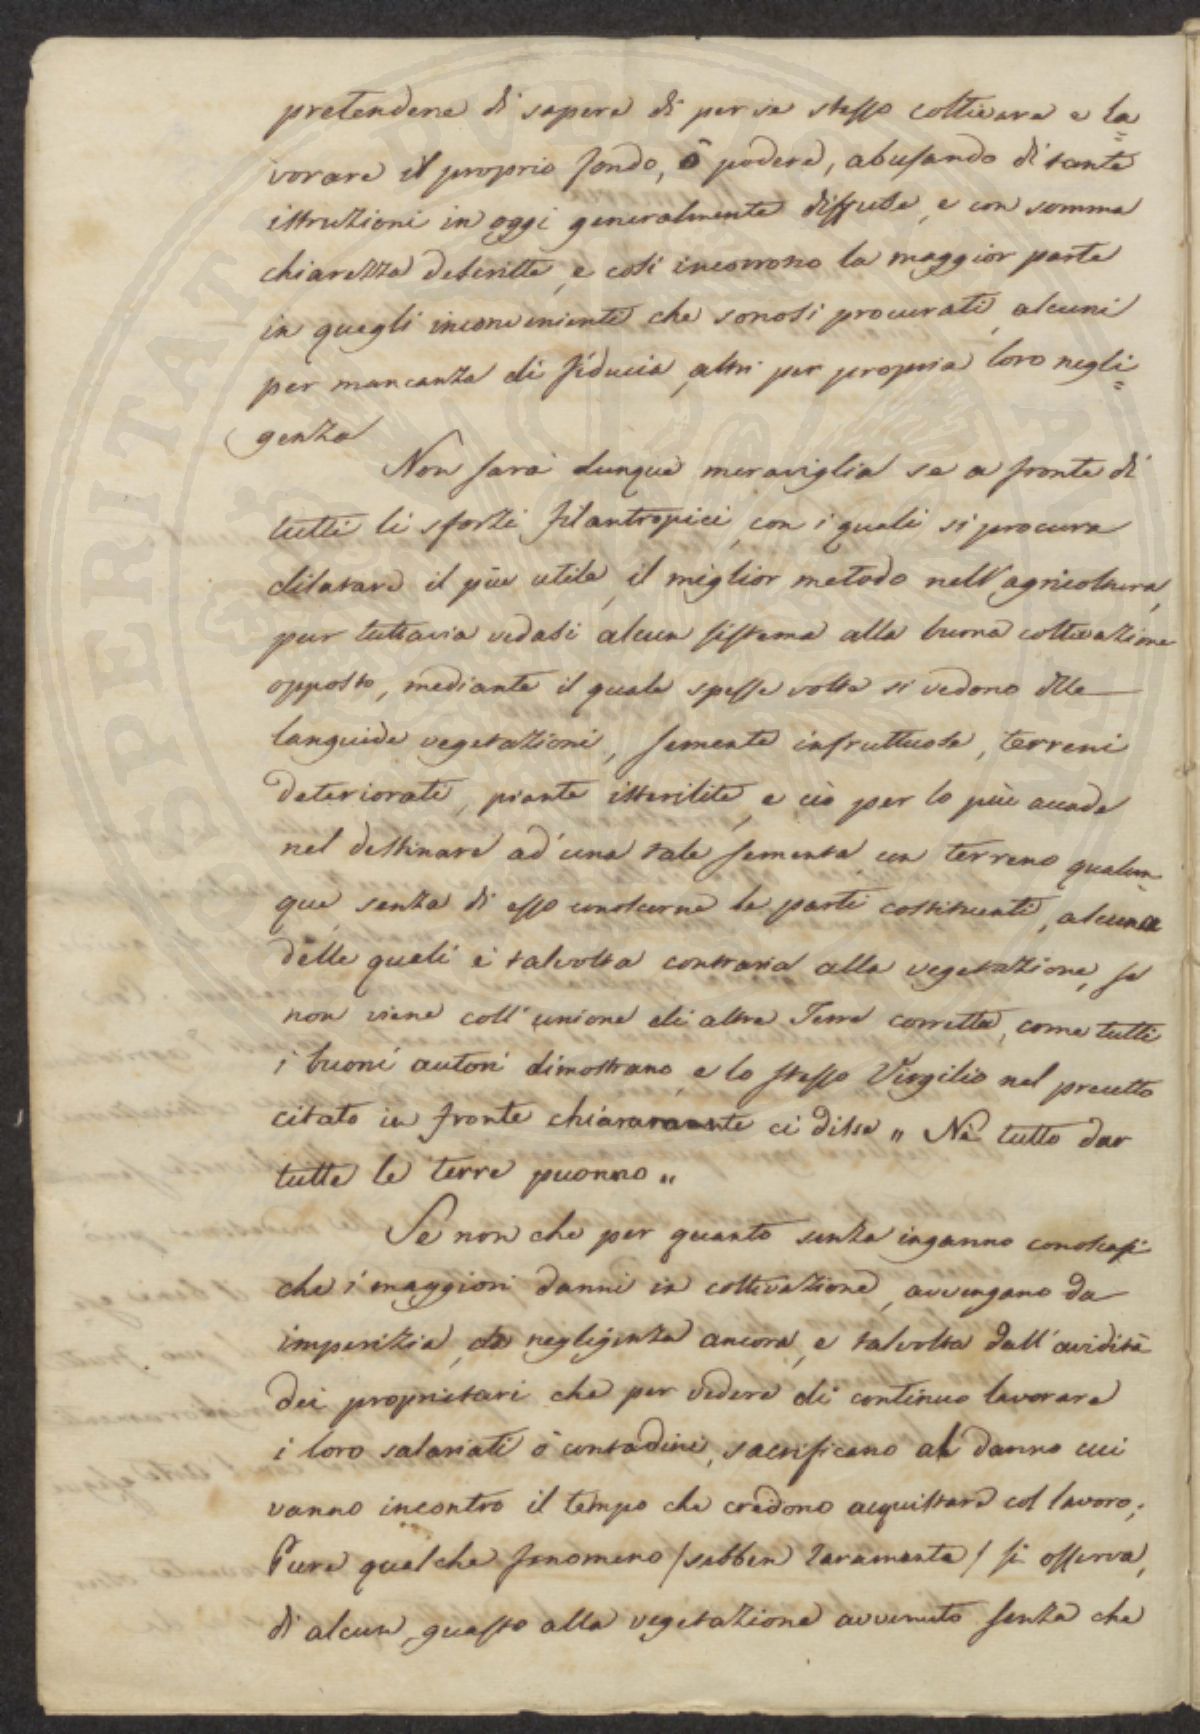 pretendere di sapere di per se stesso coltivare e la=
vorare il proprio fondo, ò podere, abusando di tante
istruzioni in oggi generalmente diffuse, e con somma
chiarezza descritte, e così incorrono la maggior parte
in quegli inconvenienti che sonosi procurati, alcuni
per mancanza di fiducia, altri per propria loro negli=
genza
Non sarà dunque meraviglia se a fronte di
tutti li sforzi filantropici, con i quali si procura
dilatare il più utile, il miglior metodo nell'agricoltura,
pur tuttavia vedasi alcun sistema alla buona coltivazione
opposto, mediante il quale spesse volte si vedono delle
languide vegetazioni, semente infruttuose, terreni
deteriorati, piante isterilite, e ciò per lo più accade
nel destinare ad una tale sementa un terreno qualun=
que, senza di esso conoscerne le parti costituenti, alcuna
delle quali è talvolta contraria alla vegetazione, se
non viene coll'unione di altre Terre corretta, come tutti
i buoni autori dimostrano, e lo stesso Virgilio nel precetto
citato in fronte chiaramente ci disse „ Nè tutto dar
tutte le terre puonno „
Se non che per quanto senza inganno conoscasi
che i maggiori danni in coltivazione, avvengano da
imperizia, da negligenza ancora, e talvolta dall'avidità
dei proprietari che per vedere di continuo lavorare
i loro salariati ò contadini, sacrificano al danno cui
vanno incontro il tempo che credono acquistare col lavoro;
Pure qualche fenomeno /sebben raramente/ si osserva,
di alcun guasto alla vegetazione avvenuto senza che